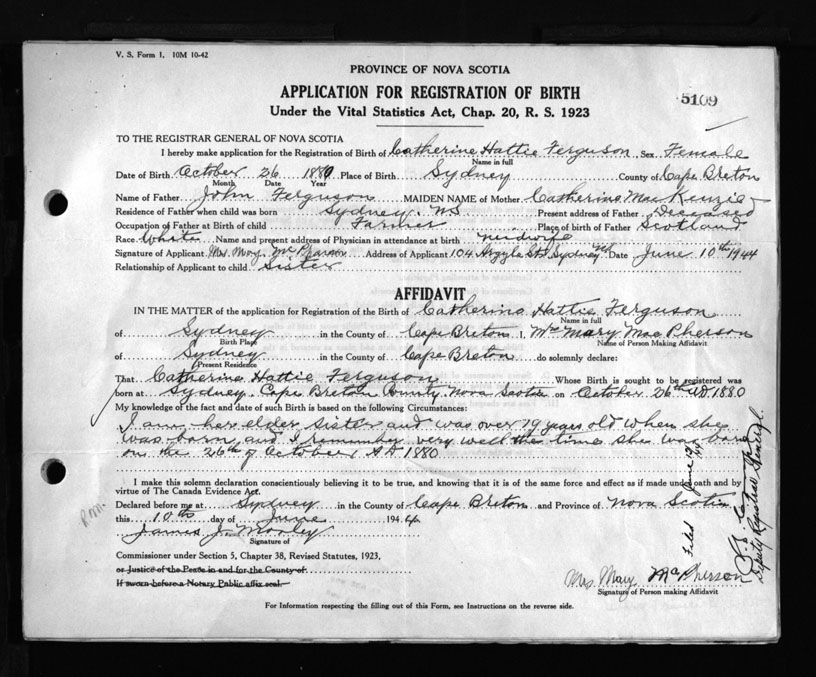 V. S. Form 1. 10M 10-42
PROVINCE OF NOVA SCOTIA
APPLICATION FOR REGISTRATION OF BIRTH
5109
Under the Vital Statistics Act, Chap. 20, R. S. 1923
TO THE REGISTRAR GENERAL OF NOVA SCOTIA
I hereby make application for the Registration of Birth of Catherine Hattie Ferguson Sex Female
Name in full
Date of Birth October 26 1880 Place of Birth Sydney County of Cape Breton
Month Date Year
Name of Father John Ferguson MAIDEN NAME of Mother Catherine MacKenzie
Residence of Father when child was born Sydney NS Present address of Father Deceased
Occupation of Father at Birth of child Farmer Place of birth of Father Scotland
Race White Name and present address of Physician in attendance at birth midwife
Signature of Applicant Mrs. Mary McPherson Address of Applicant 104 Argyle St Sydney NS Date June 10th 1944
Relationship of Applicant to child Sister
AFFIDAVIT
IN THE MATTER of the application for Registration of the Birth of Catherine Hattie Ferguson
Name in full
of Sydney in the County of Cape Breton I, Mrs Mary MacPherson
Birth Place Name of Person Making Affidavit
of Sydney in the County of Cape Breton do solemnly declare:
Present Residence
That Catherine Hattie Ferguson Whose Birth is sought to be registered was
born at Sydney Cape Breton County Nova Scotia on October 26th AD 1880
My knowledge of the fact and date of such Birth is based on the following Circumstances:
I am her elder sister and was over 19 years old when she
was born and I remember very well the time she was born
on the 26th of October AD 1880
I make this solemn declaration conscientiously believing it to be true, and knowing that it is of the same force and effect as if made under oath and by
virtue of The Canada Evidence Act.
Declared before me at Sydney in the County of Cape Breton and Province of Nova Scotia
this 10th day of June 1944
James J. Morley
Signature of
Commissioner under Section 5, Chapter 38, Revised Statutes, 1923,
or Justice of the Peace in and for the County of
If sworn before a Notary Public affix seal
Mrs. Mary McPherson
Signature of Person making Affidavit
For Information respecting the filling out of this Form, see Instructions on the reverse side.
P.M.
Filed June 13
Deputy Registrar General